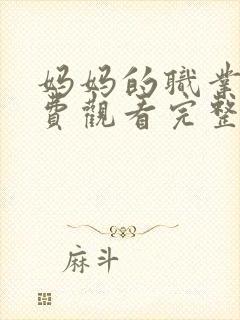 妈妈的職業
費觀看完整
麻斗